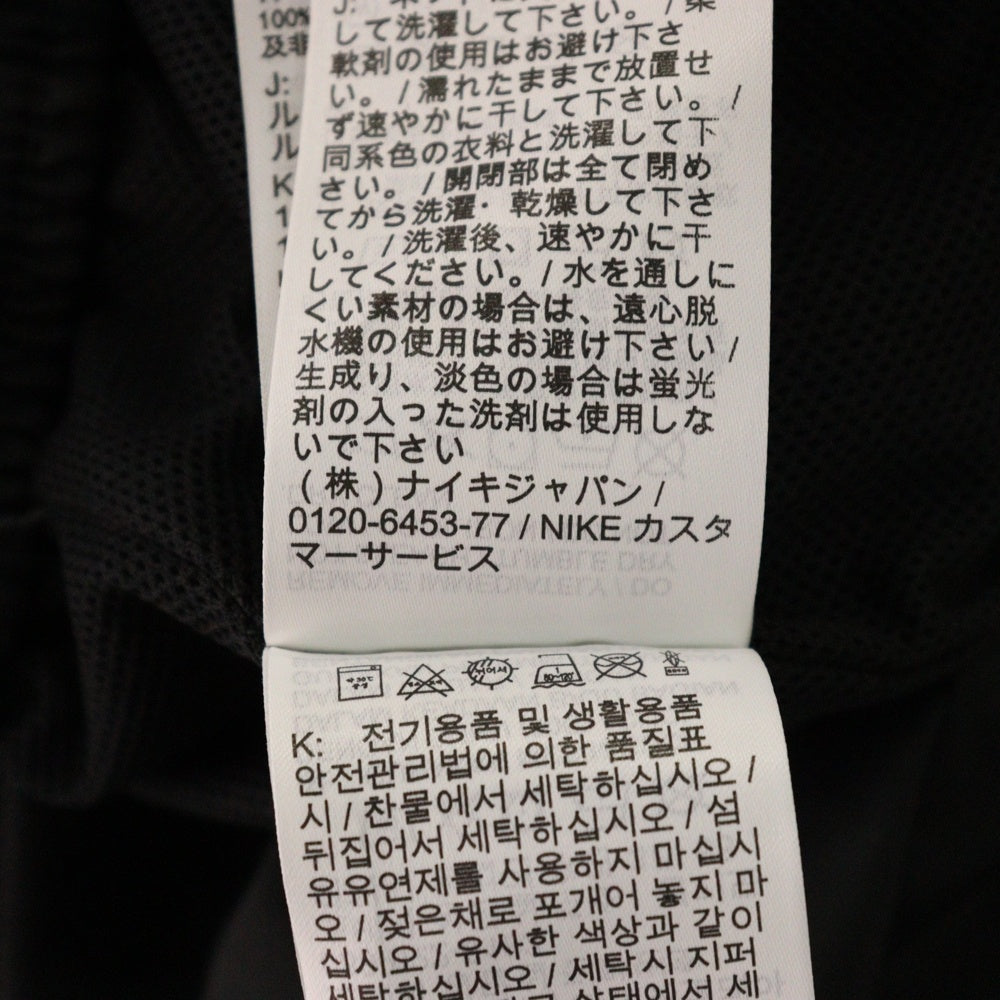 100%
及非
J:
ル
ル
K
して洗濯して下さい。 / 柔
軟剤の使用はお避け下さ
い。 / 濡れたままで放置せ
ず速やかに干して下さい。 /
同系色の衣料と洗濯して下
さい。 / 開閉部は全て閉め
てから洗濯・乾燥して下さ
い。 / 洗濯後、速やかに干
してください。 / 水を通しに
くい素材の場合は、遠心脱
水機の使用はお避け下さい /
生成り、淡色の場合は蛍光
剤の入った洗剤は使用しな
いで下さい
(株)ナイキジャパン /
0120-6453-77 / NIKE カスタ
マーサービス
K: 전기용품 및 생활용품
안전관리법에 의한 품질표
시 / 찬물에서 세탁하십시오 /
뒤집어서 세탁하십시오 / 섬
유유연제를 사용하지 마십시
오 / 젖은채로 포개어 놓지 마
십시오 / 유사한 색상과 같이
세탁하십시오 / 세탁시 지퍼
상태에서 세